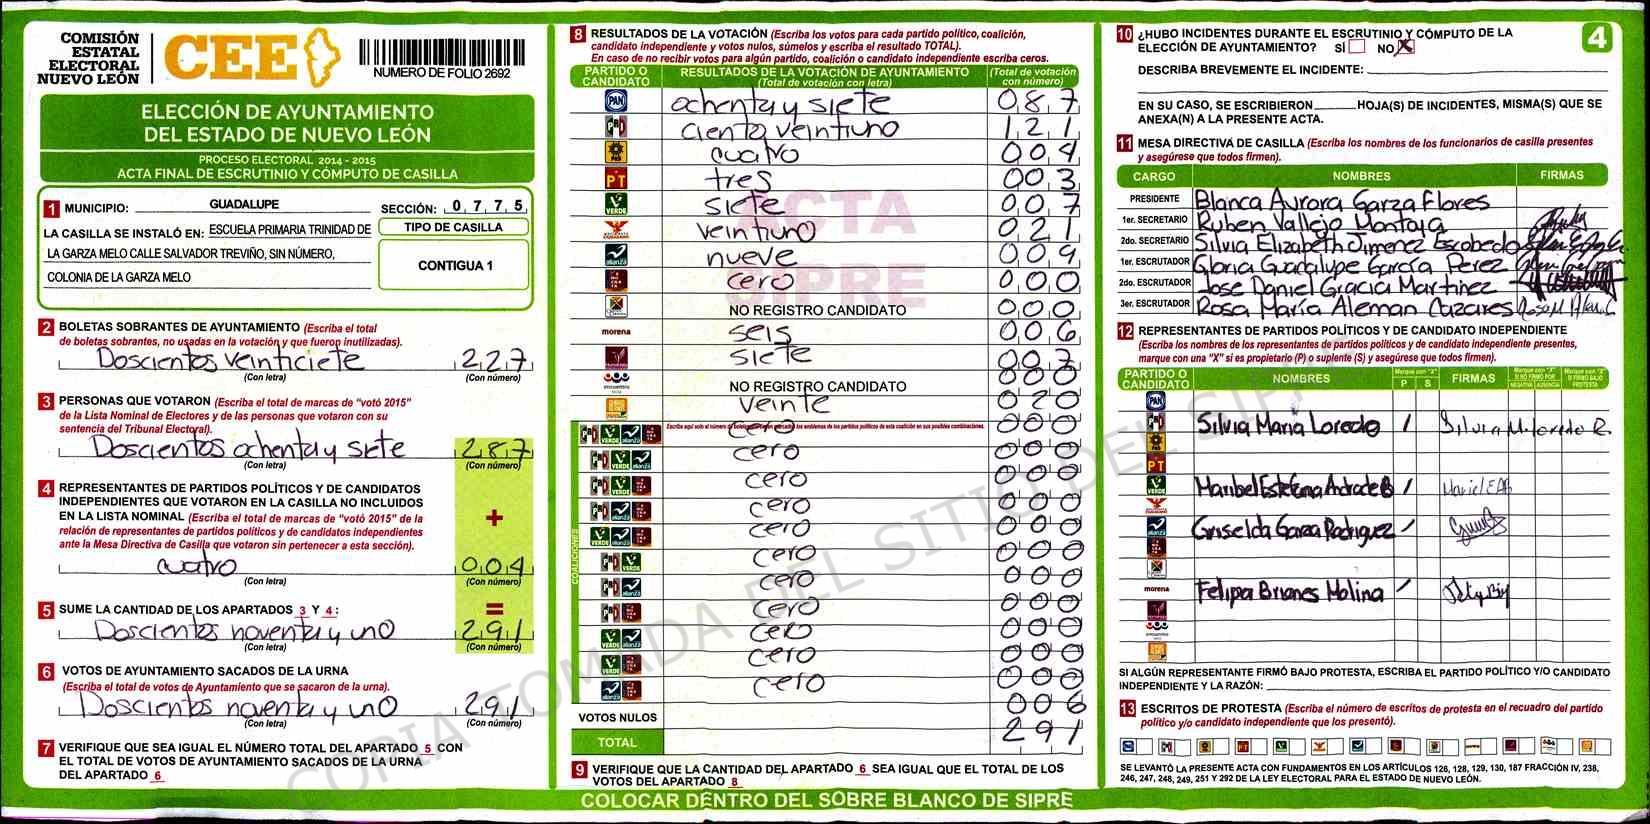 COMISIÓN
ESTATAL
ELECTORAL
NUEVO LEÓN
CEE
NUMERO DE FOLIO 2692
ELECCIÓN DE AYUNTAMIENTO
DEL ESTADO DE NUEVO LEÓN
PROCESO ELECTORAL 2014 - 2015
ACTA FINAL DE ESCRUTINIO Y CÓMPUTO DE CASILLA
1 MUNICIPIO: GUADALUPE SECCIÓN: 0,7,7,5
LA CASILLA SE INSTALÓ EN: ESCUELA PRIMARIA TRINIDAD DE
LA GARZA MELO CALLE SALVADOR TREVIÑO, SIN NÚMERO,
COLONIA DE LA GARZA MELO
TIPO DE CASILLA
CONTIGUA 1
2 BOLETAS SOBRANTES DE AYUNTAMIENTO (Escriba el total
de boletas sobrantes, no usadas en la votación y que fueron inutilizadas).
Doscientos veinticiete 2,2,7
(Con letra) (Con número)
3 PERSONAS QUE VOTARON (Escriba el total de marcas de "votó 2015"
de la Lista Nominal de Electores y de las personas que votaron con su
sentencia del Tribunal Electoral).
Doscientos ochenta y siete 2,8,7
(Con letra) (Con número)
4 REPRESENTANTES DE PARTIDOS POLÍTICOS Y DE CANDIDATOS
INDEPENDIENTES QUE VOTARON EN LA CASILLA NO INCLUIDOS
EN LA LISTA NOMINAL (Escriba el total de marcas de "votó 2015" de la
relación de representantes de partidos políticos y de candidatos independientes
ante la Mesa Directiva de Casilla que votaron sin pertenecer a esta sección).
+
cuatro 0,0,4
(Con letra) (Con número)
5 SUME LA CANTIDAD DE LOS APARTADOS 3 Y 4: =
Doscientos noventa y uno 2,9,1
(Con letra) (Con número)
6 VOTOS DE AYUNTAMIENTO SACADOS DE LA URNA
(Escriba el total de votos de Ayuntamiento que se sacaron de la urna).
Doscientos noventa y uno 2,9,1
(Con letra) (Con número)
7 VERIFIQUE QUE SEA IGUAL EL NÚMERO TOTAL DEL APARTADO 5 CON
EL TOTAL DE VOTOS DE AYUNTAMIENTO SACADOS DE LA URNA
DEL APARTADO 6
8 RESULTADOS DE LA VOTACIÓN (Escriba los votos para cada partido político, coalición,
candidato independiente y votos nulos, súmelos y escriba el resultado TOTAL).
En caso de no recibir votos para algún partido, coalición o candidato independiente escriba ceros.
PARTIDO O CANDIDATO RESULTADOS DE LA VOTACIÓN DE AYUNTAMIENTO (Total de votación con letra) (Total de votación con número)
PAN ochenta y siete 0,8,7
PRD ciento veintiuno 1,2,1
cuatro 0,0,4
PT tres 0,0,3
VERDE siete 0,0,7
veintiuno 0,2,1
alianza nueve 0,0,9
cero 0,0,0
NO REGISTRO CANDIDATO 0,0,0
morena seis 0,0,6
siete 0,0,7
NO REGISTRO CANDIDATO 0 0 0
veinte 0,2,0
cero 0 0 0
cero 0 0 0
cero 0 0 0
cero 0 0 0
cero 0 0 0
cero 0 0 0
cero 0 0 0
cero 0 0 0
cero 0 0 0
cero 0 0 0
cero 0 0 0
COALICIONES
VOTOS NULOS 0 0 6
TOTAL 2 9 1
9 VERIFIQUE QUE LA CANTIDAD DEL APARTADO 6 SEA IGUAL QUE EL TOTAL DE LOS
VOTOS DEL APARTADO 8
COLOCAR DENTRO DEL SOBRE BLANCO DE SIPRE
ACTA
SIPRE
COPIA TOMADA DEL SITIO DEL SIPRE
10 ¿HUBO INCIDENTES DURANTE EL ESCRUTINIO Y CÓMPUTO DE LA
ELECCIÓN DE AYUNTAMIENTO? SÍ NO X
4
DESCRIBA BREVEMENTE EL INCIDENTE:
EN SU CASO, SE ESCRIBIERON HOJA(S) DE INCIDENTES, MISMA(S) QUE SE
ANEXA(N) A LA PRESENTE ACTA.
11 MESA DIRECTIVA DE CASILLA (Escriba los nombres de los funcionarios de casilla presentes
y asegúrese que todos firmen).
CARGO NOMBRES FIRMAS
PRESIDENTE Blanca Aurora Garza Flores
1er. SECRETARIO Ruben Vallejo Montoya
2do. SECRETARIO Silvia Elizabeth Jimenez Escobedo
1er. ESCRUTADOR Gloria Guadalupe García Perez
2do. ESCRUTADOR Jose Daniel Gracia Martinez
3er. ESCRUTADOR Rosa María Aleman Cazares
12 REPRESENTANTES DE PARTIDOS POLÍTICOS Y DE CANDIDATO INDEPENDIENTE
(Escriba los nombres de los representantes de partidos políticos y de candidato independiente presentes,
marque con una "X" si es propietario (P) o suplente (S) y asegúrese que todos firmen).
PARTIDO O CANDIDATO NOMBRES Marque con "X" P S FIRMAS Marque con "X" SI NO FIRMÓ POR NEGATIVA AUSENCIA Marque con "X" SI FIRMÓ BAJO PROTESTA
PAN
Silvia Maria Loredo / Silvia M. Loredo R.
PT
VERDE Maribel Estefana Andrade B /
alianza Griselda Garza Rodriguez /
morena Felipa Briones Molina /
SI ALGÚN REPRESENTANTE FIRMÓ BAJO PROTESTA, ESCRIBA EL PARTIDO POLÍTICO Y/O CANDIDATO
INDEPENDIENTE Y LA RAZÓN:
13 ESCRITOS DE PROTESTA (Escriba el número de escritos de protesta en el recuadro del partido
político y/o candidato independiente que los presentó).
SE LEVANTÓ LA PRESENTE ACTA CON FUNDAMENTOS EN LOS ARTÍCULOS 126, 128, 129, 130, 187 FRACCIÓN IV, 238,
246, 247, 248, 249, 251 Y 292 DE LA LEY ELECTORAL PARA EL ESTADO DE NUEVO LEÓN.